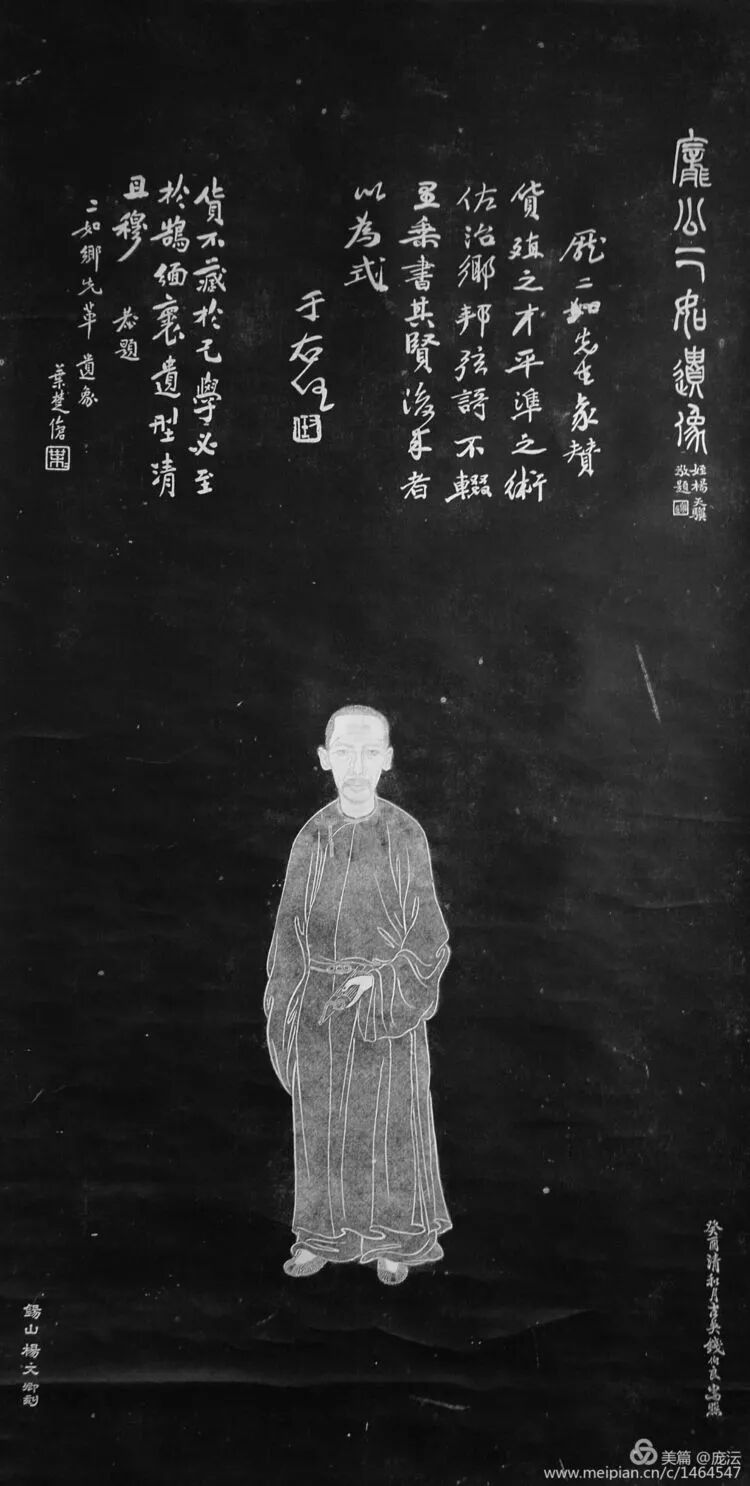 龐公二如遺像
姪楊天驥
敬題
龐二如先生象贊
貨殖之才平準之術
佐治鄉邦弦誦不輟
里乘書其賢後來者
以為式
于右任
貨不藏於己學必至
於鵠緬褱遺型清
且穆 恭題
二如鄉先輩遺象
葉楚傖
癸酉清和月古吳錢伯良寫照
錫山楊文卿刻
美篇 @庞沄
www.meipian.cn/c/1464547